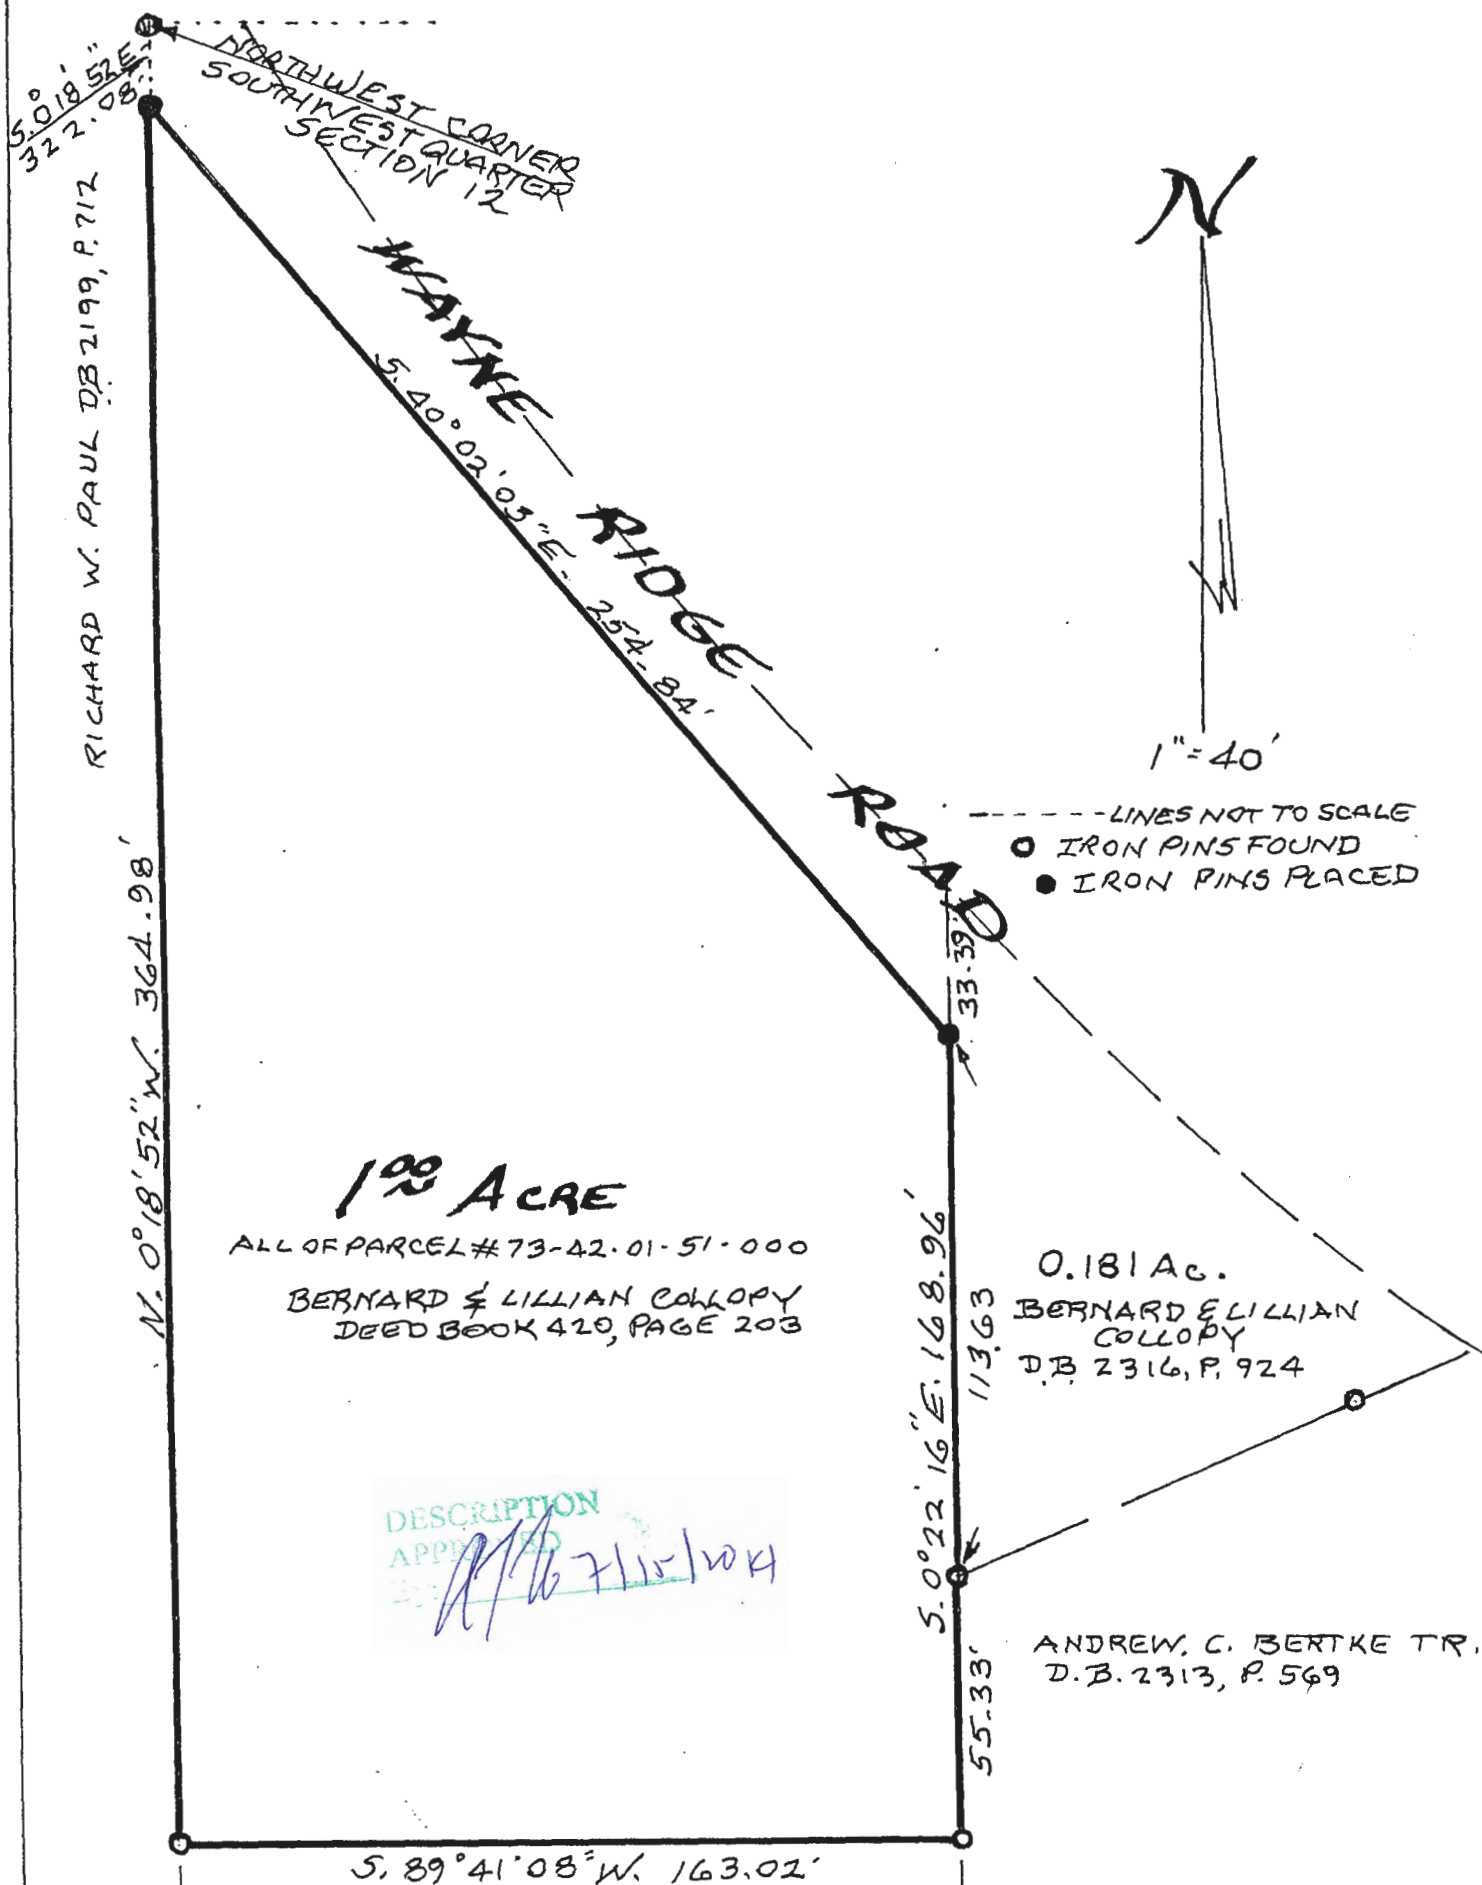 S. 0° 18' 52" E
322.08
NORTHWEST CORNER
SOUTHWEST QUARTER
SECTION 12
N
RICHARD W. PAUL DB 2199, P. 712
WAYNE RIDGE ROAD
S. 40° 02' 03" E - 254.84'
1" = 40'
------ LINES NOT TO SCALE
IRON PINS FOUND
IRON PINS PLACED
33.39'
N. 0° 18' 52" W. 364.98'
1 00 ACRE
ALL OF PARCEL # 73-42-01-51-000
BERNARD & LILLIAN COLLOPY
DEED BOOK 420, PAGE 203
S. 0° 22' 16" E. 168.96'
113.63
0.181 AC.
BERNARD & LILLIAN
COLLOPY
D.B. 2316, P. 924
DESCRIPTION
APPROVED
7/15/2014
55.33'
ANDREW. C. BERTKE TR.
D.B. 2313, P. 569
S. 89° 41' 08" W. 163.02'